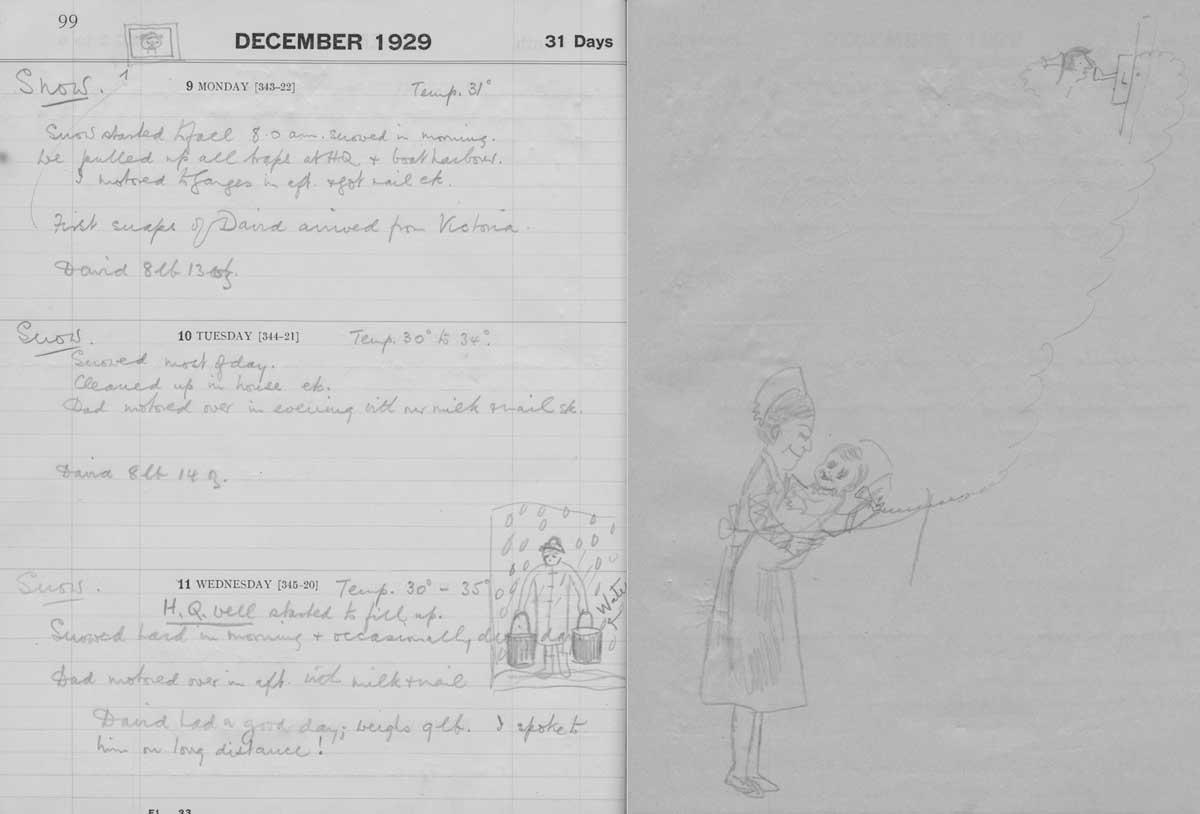 99
DECEMBER 1929
31 Days
Snow.
9 MONDAY [343-22]
Temp. 31°
Snow started to fall 8.0 am. snowed in morning.
We pulled up all traps at HQ + boat harbour.
I motored to Ganges in aft. + got mail etc.
First snaps of David arrived from Victoria.
David 8 lb 13 oz.
Snow.
10 TUESDAY [344-21]
Temp. 30° to 34°.
Snowed most of day.
Cleaned up in house etc.
Dad motored over in evening with our milk + mail etc.
David 8 lb 14 oz.
Snow.
11 WEDNESDAY [345-20]
Temp. 30° - 35°
H.Q. well started to fill up.
Snowed hard in morning + occasionally day
Water
Dad motored over in aft. with milk + mail
David had a good day; weighs 9 lb. I spoke to
him on long distance!